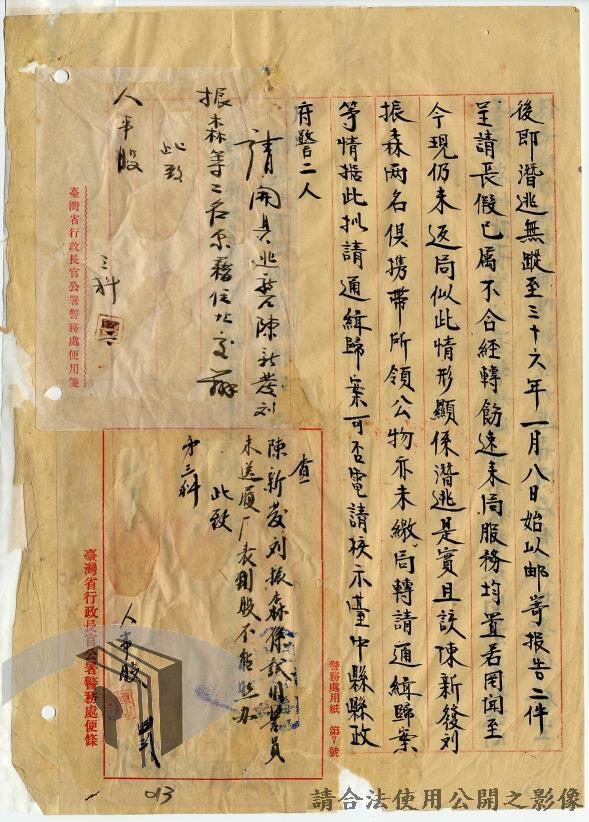 後即潛逃無蹤至三十六年一月八日始以郵寄报告二件
呈請長假已屬不合經轉飭速来局服務均置若罔闻至
今現仍未返局似此情形顯係潛逃是實且該陳新發刘
振森两名俱携帶所領公物亦未繳局轉請通緝歸案
等情据此拟請通緝歸案可否電請核示臺中縣縣政
府警二人
警務處用紙 第7號
請開具逃警陳新發刘
振森等二名原籍住址
此致
人事股
三科
臺灣省行政長官公署警務處便用箋
查
陳新發刘振森係試用警員
未送履歷表到股不能照办
此致
第三科
人事股
臺灣省行政長官公署警務處便條
013
請合法使用公開之影像